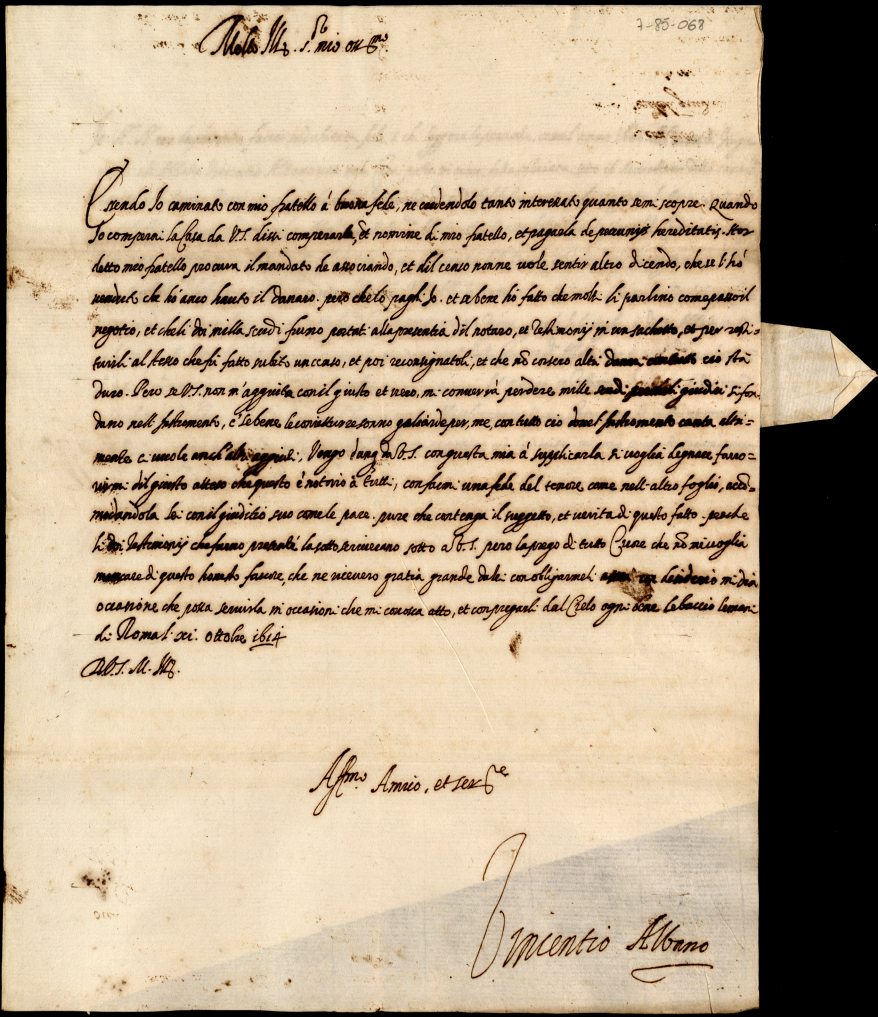 7-85-068
Molto Ill.re S.r mio oss.mo
Essendo Io caminato con mio fratello á buona fede, ne credendolo tanto interessato quanto se mi scopre. Quando
Io comperai la Casa da V.S. dissi comperarla, et nomine di mio fratello, et pagarla de pecunijs hereditatis. Hor
detto mio fratello procura il mandato de associando, et del censo non ne vole sentir altro dicendo, che se l'hó
venduto che hó anco hauto il danaro. peró che ló paghi Io. et se bene hó fatto che molti li parlino come passó il
negotio, et che li doi milla scudi furno portati alla presentia del notaro, et Testimonij in un sachetto, et per resti-
tuirli al stesso che fú fatto subito un censo, et poi reconsignatoli, et che nó corsero altri danari cio stá
duro. Peró se V.S. non m'aggiuta con il giusto et vero, mi converrá perdere mille scudi giudici si fon-
dano nell'Instromento, e se bene le conietture sonno galiarde per me, con tutto ció dove l'Instromento canta altri-
mente ci vuole anch'altri aggiuti, Vengo dunq da V.S. con questa mia á supplicarla si voglia degnare favo-
rirmi del giusto atteso che questo é notorio á Tutti, con farmi una fede del tenore come nell'altro foglio, acco-
modandola lei con il giuditio suo come le pare. pure che contenga il suggetto, et veritá di questo fatto. perche
li doi Testimonij che furno presenti la sottoscriveranno sotto a V.S. peró la prego di tutto Cuore che nó mi voglia
mancare di questo honesto favore, che ne riceveró gratia grande da lei con obligarmeli un desiderio mi dia
occasione che possa servirla in occasioni che mi conosca atto, et con pregarli dal Cielo ogni bene le baccio le mani
di Roma li xi. ottobre 1614
D.V.S. M. Ill.re
Aff.mo Amico, et ser.re
Vincentio Albano